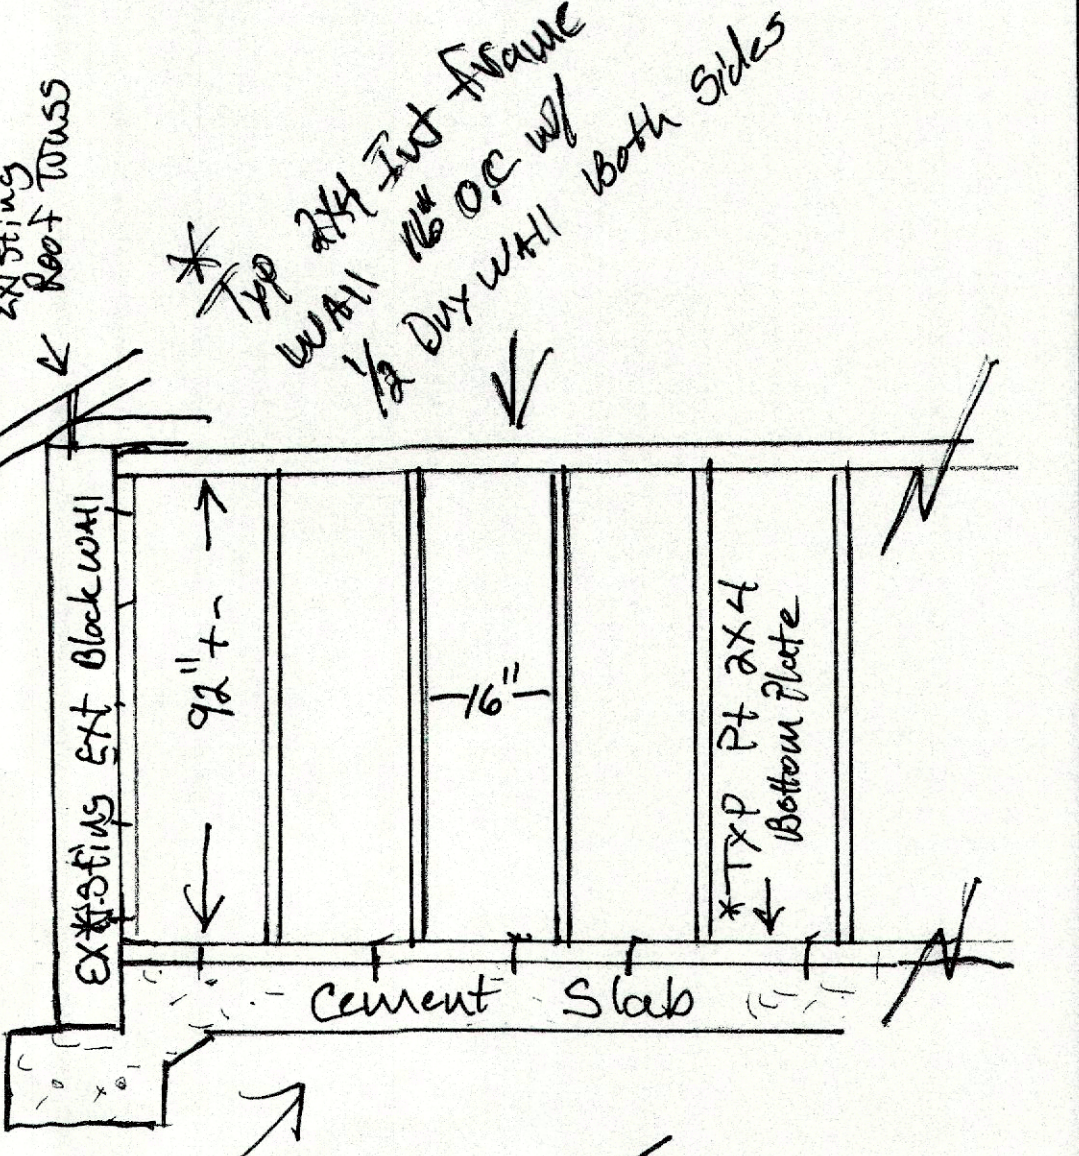 Existing
Roof Truss
* Typ 2x4 Int Frame
WAll 16" O.C w/
1/2 DryWAll Both Sides
Existing Ext Block WAll
92" + -
16"
* Typ Pt 2x4
Bottom Plate
Cement Slab